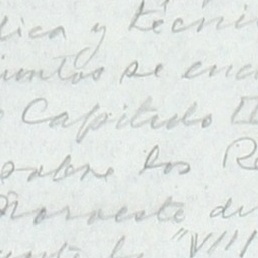 dica y técni
ientos se enc
Capitulo II
sobre los Re
Noroeste de
ante la "VIII